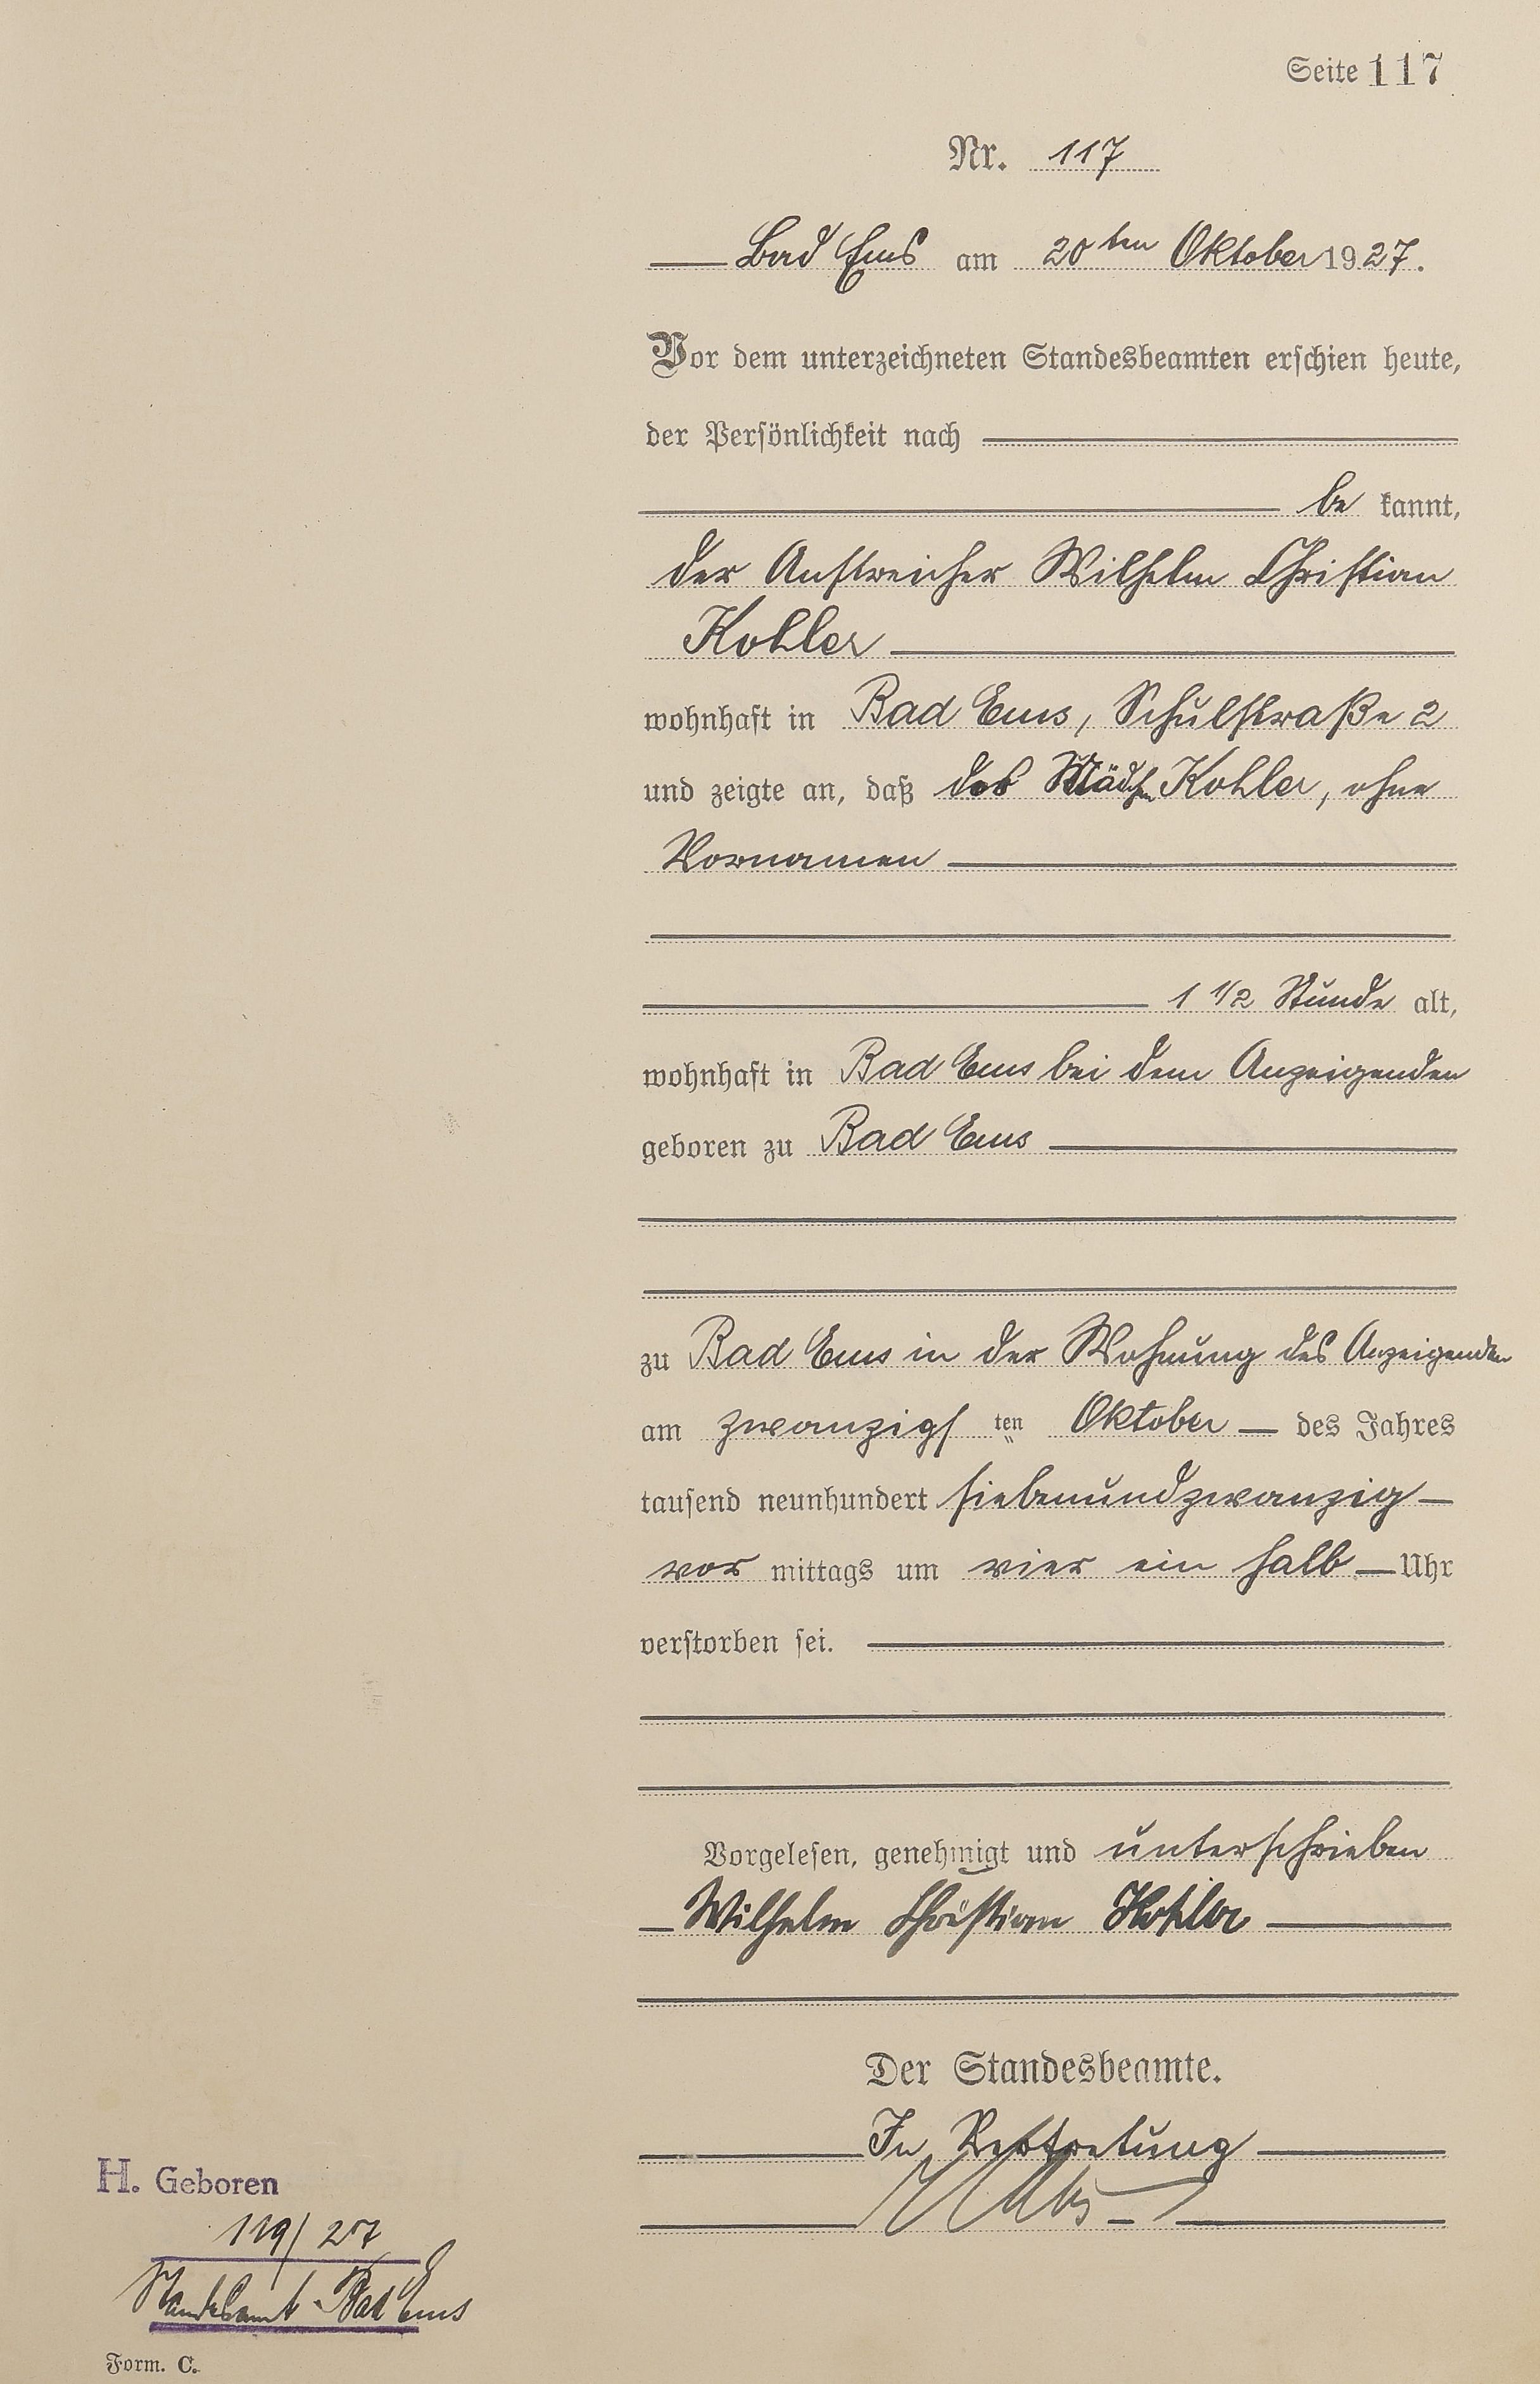 Seite 117
Nr. 117
Bad Ems am 20ten Oktober 1927.
Vor dem unterzeichneten Standesbeamten erschien heute,
der Persönlichkeit nach
be kannt,
der Anstreicher Wilhelm Christian
Kohler
wohnhaft in Bad Ems, Schulstraße 2
und zeigte an, daß das Mädchen Kohler, ohne
Vornamen
1 1/2 Stunde alt,
wohnhaft in Bad Ems bei dem Anzeigenden
geboren zu Bad Ems
zu Bad Ems in der Wohnung des Anzeigenden
am zwanzigs ten Oktober des Jahres
tausend neunhundert siebenundzwanzig
vor mittags um vier ein halb Uhr
verstorben sei.
Vorgelesen, genehmigt und unterschrieben
Wilhelm Christian Kohler
Der Standesbeamte.
In Vertretung
H. Geboren
119/27
Standesamt Bad Ems
Form. C.